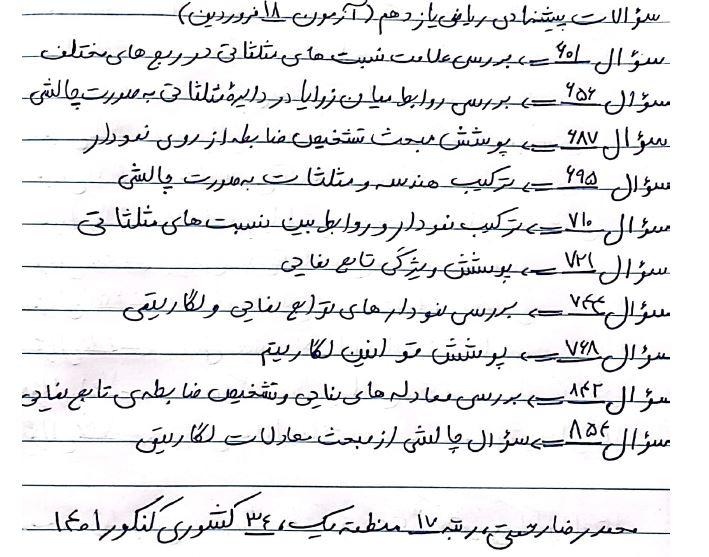 سؤالات پیشنهادی ریاضی یازدهم (آزمون ۱۸ فروردین)
سؤال ۶۰۱ => بررسی علامت نسبت های مثلثاتی در ربع های مختلف
سؤال ۶۵۶ => بررسی روابط میان زوایا در دایرهٔ مثلثاتی به صورت چالشی
سؤال ۶۸۷ => پوشش مبحث تشخیص ضابطه از روی نمودار
سؤال ۶۹۵ => ترکیب هندسه و مثلثات به صورت چالشی
سؤال ۷۱۰ => ترکیب نمودار و روابط بین نسبت های مثلثاتی
سؤال ۷۲۱ => پوشش ویژگی تابع نمایی
سؤال ۷۴۴ => بررسی نمودارهای توابع نمایی و لگاریتمی
سؤال ۷۶۸ => پوشش قوانین لگاریتم
سؤال ۸۴۲ => بررسی معادله های نمایی و تشخیص ضابطه ی تابع نمایی
سؤال ۸۵۴ => سؤال چالشی از مبحث معادلات لگاریتمی
محمدرضا رحمتی، رتبه ۱۷ منطقه یک، ۳۴ کشوری کنکور ۱۴۰۱